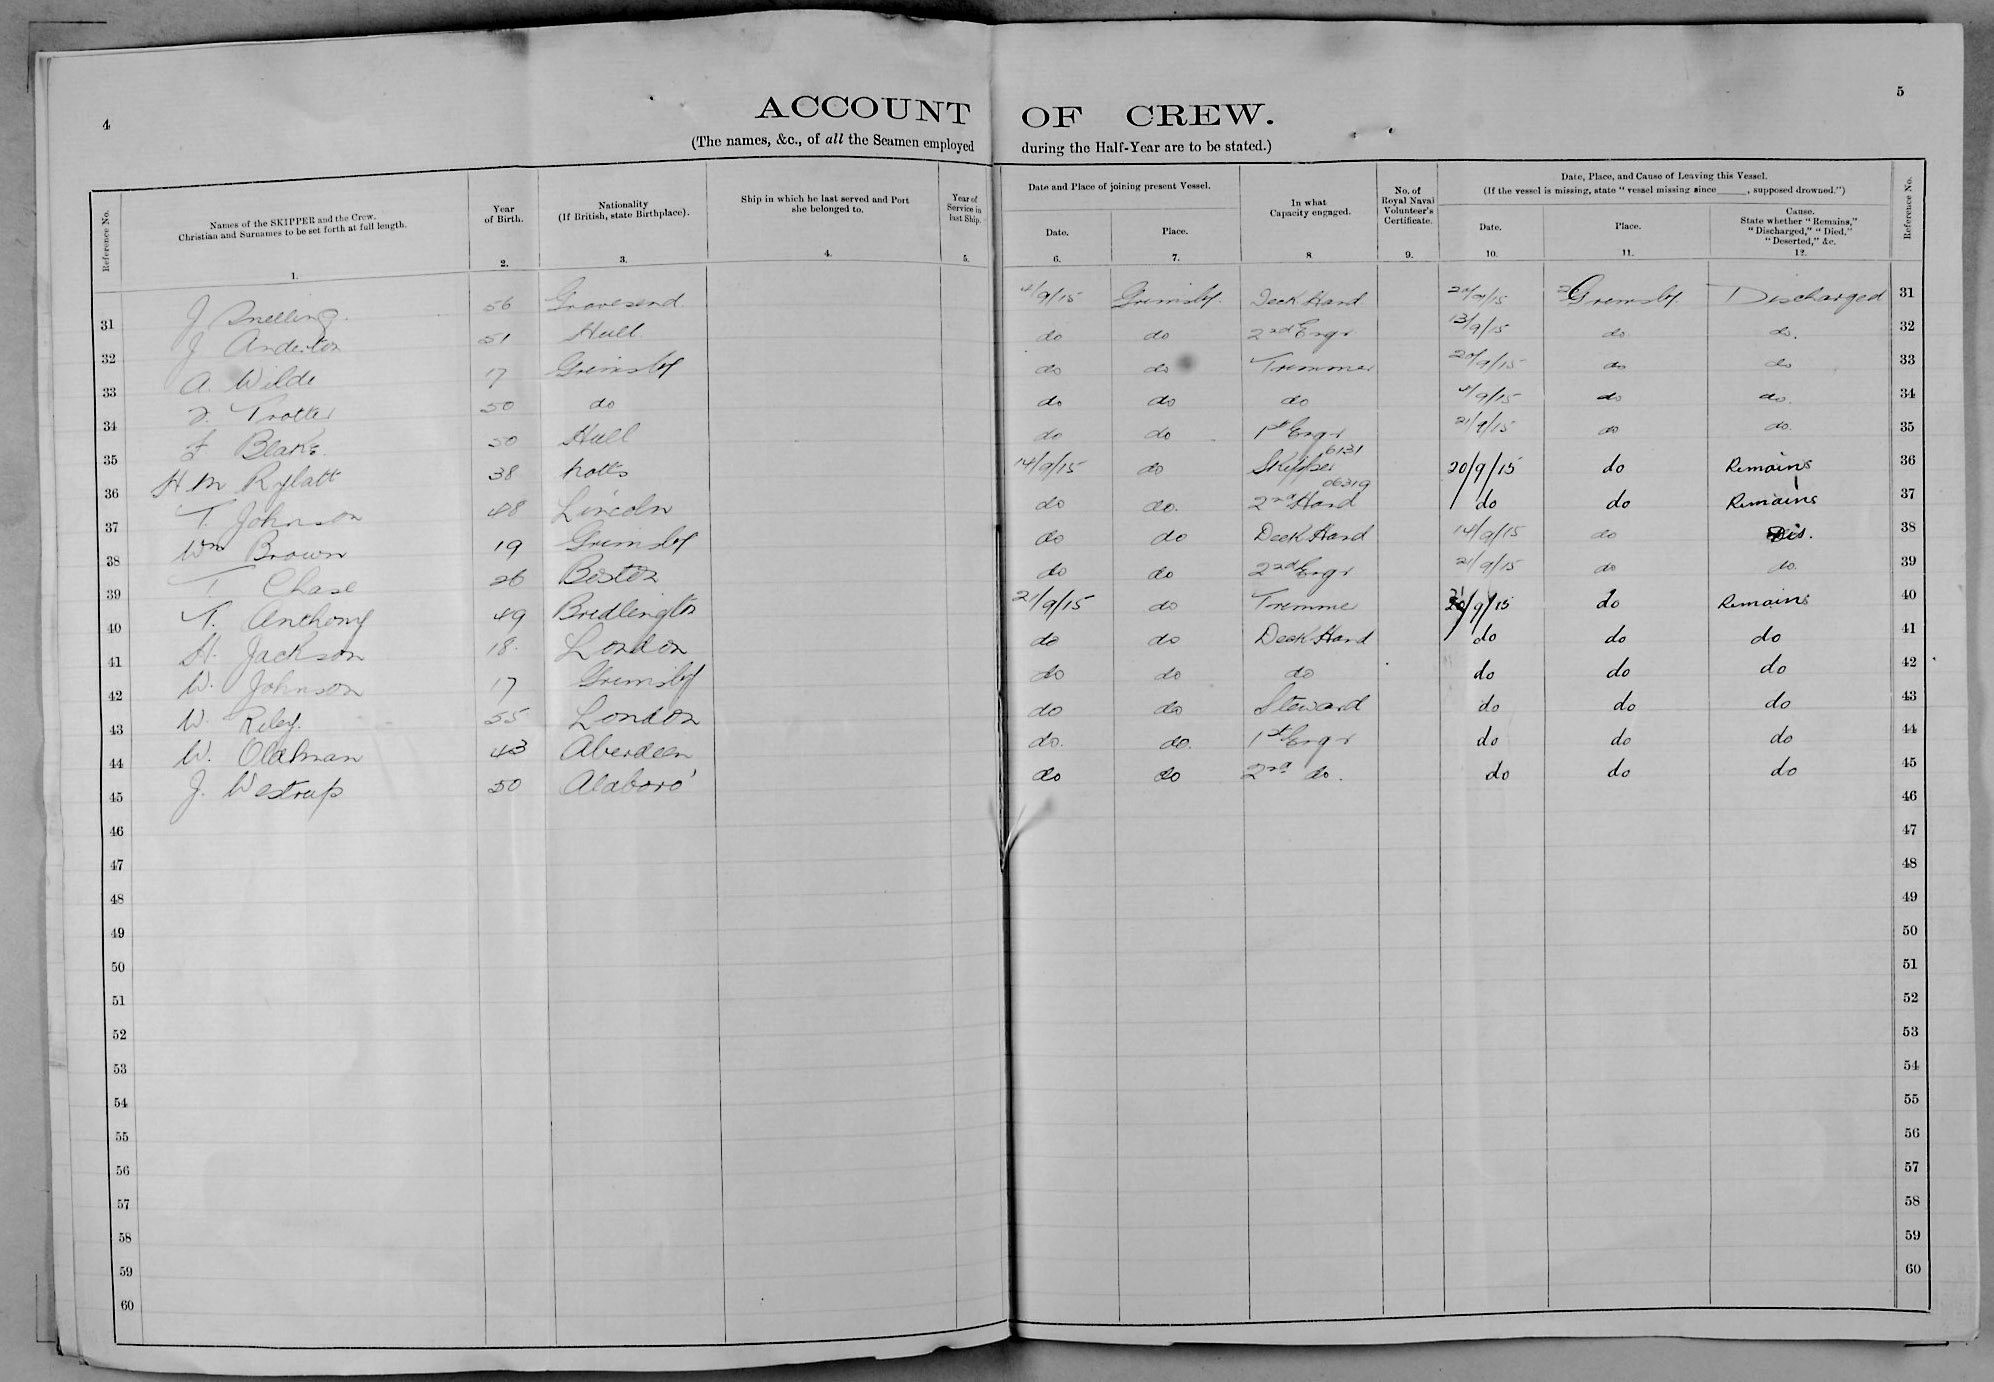 4
5
ACCOUNT OF CREW.
(The names, &c., of all the Seamen employed during the Half-Year are to be stated.)
Reference No.
Names of the SKIPPER and the Crew.
Christian and Surnames to be set forth at full length.
1.
Year of Birth.
2.
Nationality
(If British, state Birthplace).
3.
Ship in which he last served and Port she belonged to.
4.
Year of Service in last Ship.
5.
Date and Place of joining present Vessel.
Date.
6.
Place.
7.
In what Capacity engaged.
8
No. of Royal Naval Volunteer's Certificate.
9.
Date, Place, and Cause of Leaving this Vessel.
(If the vessel is missing, state "vessel missing since ____, supposed drowned.")
Date.
10.
Place.
11.
Cause.
State whether "Remains," "Discharged," "Died," "Deserted," &c.
12.
Reference No.
31 J Snelling. 56 Gravesend 4/9/15 Grimsby. Deck Hand Grimsby Discharged 31
32 J Anderton 51 Hull do do 2nd Engr 13/9/15 do do. 32
33 A. Wilde 17 Grimsby do do Trimmer 20/9/15 do do 33
34 Trotter 50 do do do do 4/9/15 do do. 34
35 F Blake. 50 Hull do do 1st Engr 21/9/15 do do 35
36 H M Rylatt 38 Notts 14/9/15 do Skipper 6131 20/9/15 do Remains 36
37 T. Johnson 48 Lincoln do do. 2nd Hand 06319 do do Remains 37
38 Wm Brown 19 Grimsby do do Deck Hand 14/9/15 do Dis. 38
39 T Chase 26 Boston do do 2nd Engr 21/9/15 do do. 39
40 T. Anthony 49 Bridlington 21/9/15 do Trimmer /9/15 do Remains 40
41 H. Jackson 18. London do do Deck Hand do do do 41
42 W. Johnson 17 Grimsby do do do do do do 42
43 W. Riley. 55 London do do Steward do do do 43
44 W. Oldman 43 Aberdeen do. do. 1st Engr do do do 44
45 J. Westrup 50 Aldboro' do do 2nd do. do do do 45
46 46
47 47
48 48
49 49
50 50
51 51
52 52
53 53
54 54
55 55
56 56
57 57
58 58
59 59
60 60